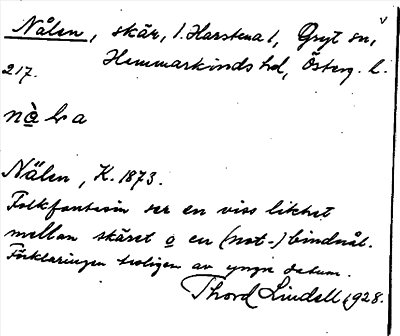 Nålen, skär, 1. Harstena 1, Gryt sn, v
217. Hammarkinds hd, Österg. l.
nằ l a
Nålen, K. 1873.
Folkfantasin ser en viss likhet
mellan skäret o en (not-) bindnål.
Förklaringen troligen av yngre datum.
Thord Lindell 1928.